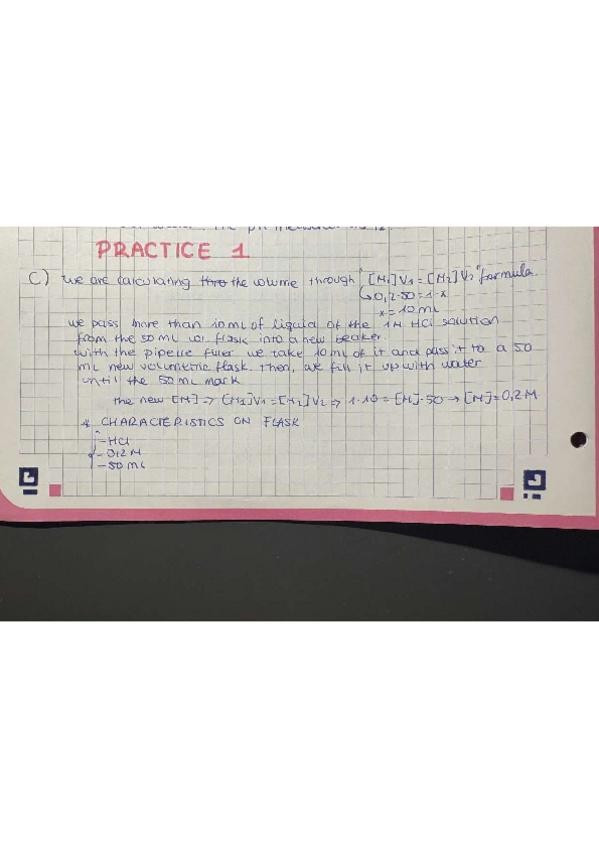 PRACTICE 1
C) we are calculating the volume through "[M1]V1=[M2]V2" formula.
0,2·50=1·x
x=10 mL
we pass more than 10 mL of liquid of the 1M HCl solution
from the 50 mL vol flask into a new beaker.
with the pipette filler we take 10 mL of it and pass it to a 50
mL new volumetric flask. Then, we fill it up with water
until the 50 mL mark
the new [M] → [M1]V1=[M2]V2 → 1·10=[M]·50 → [M]=0,2M
* CHARACTERISTICS ON FLASK
-HCl
-0,2 M
-50 mL